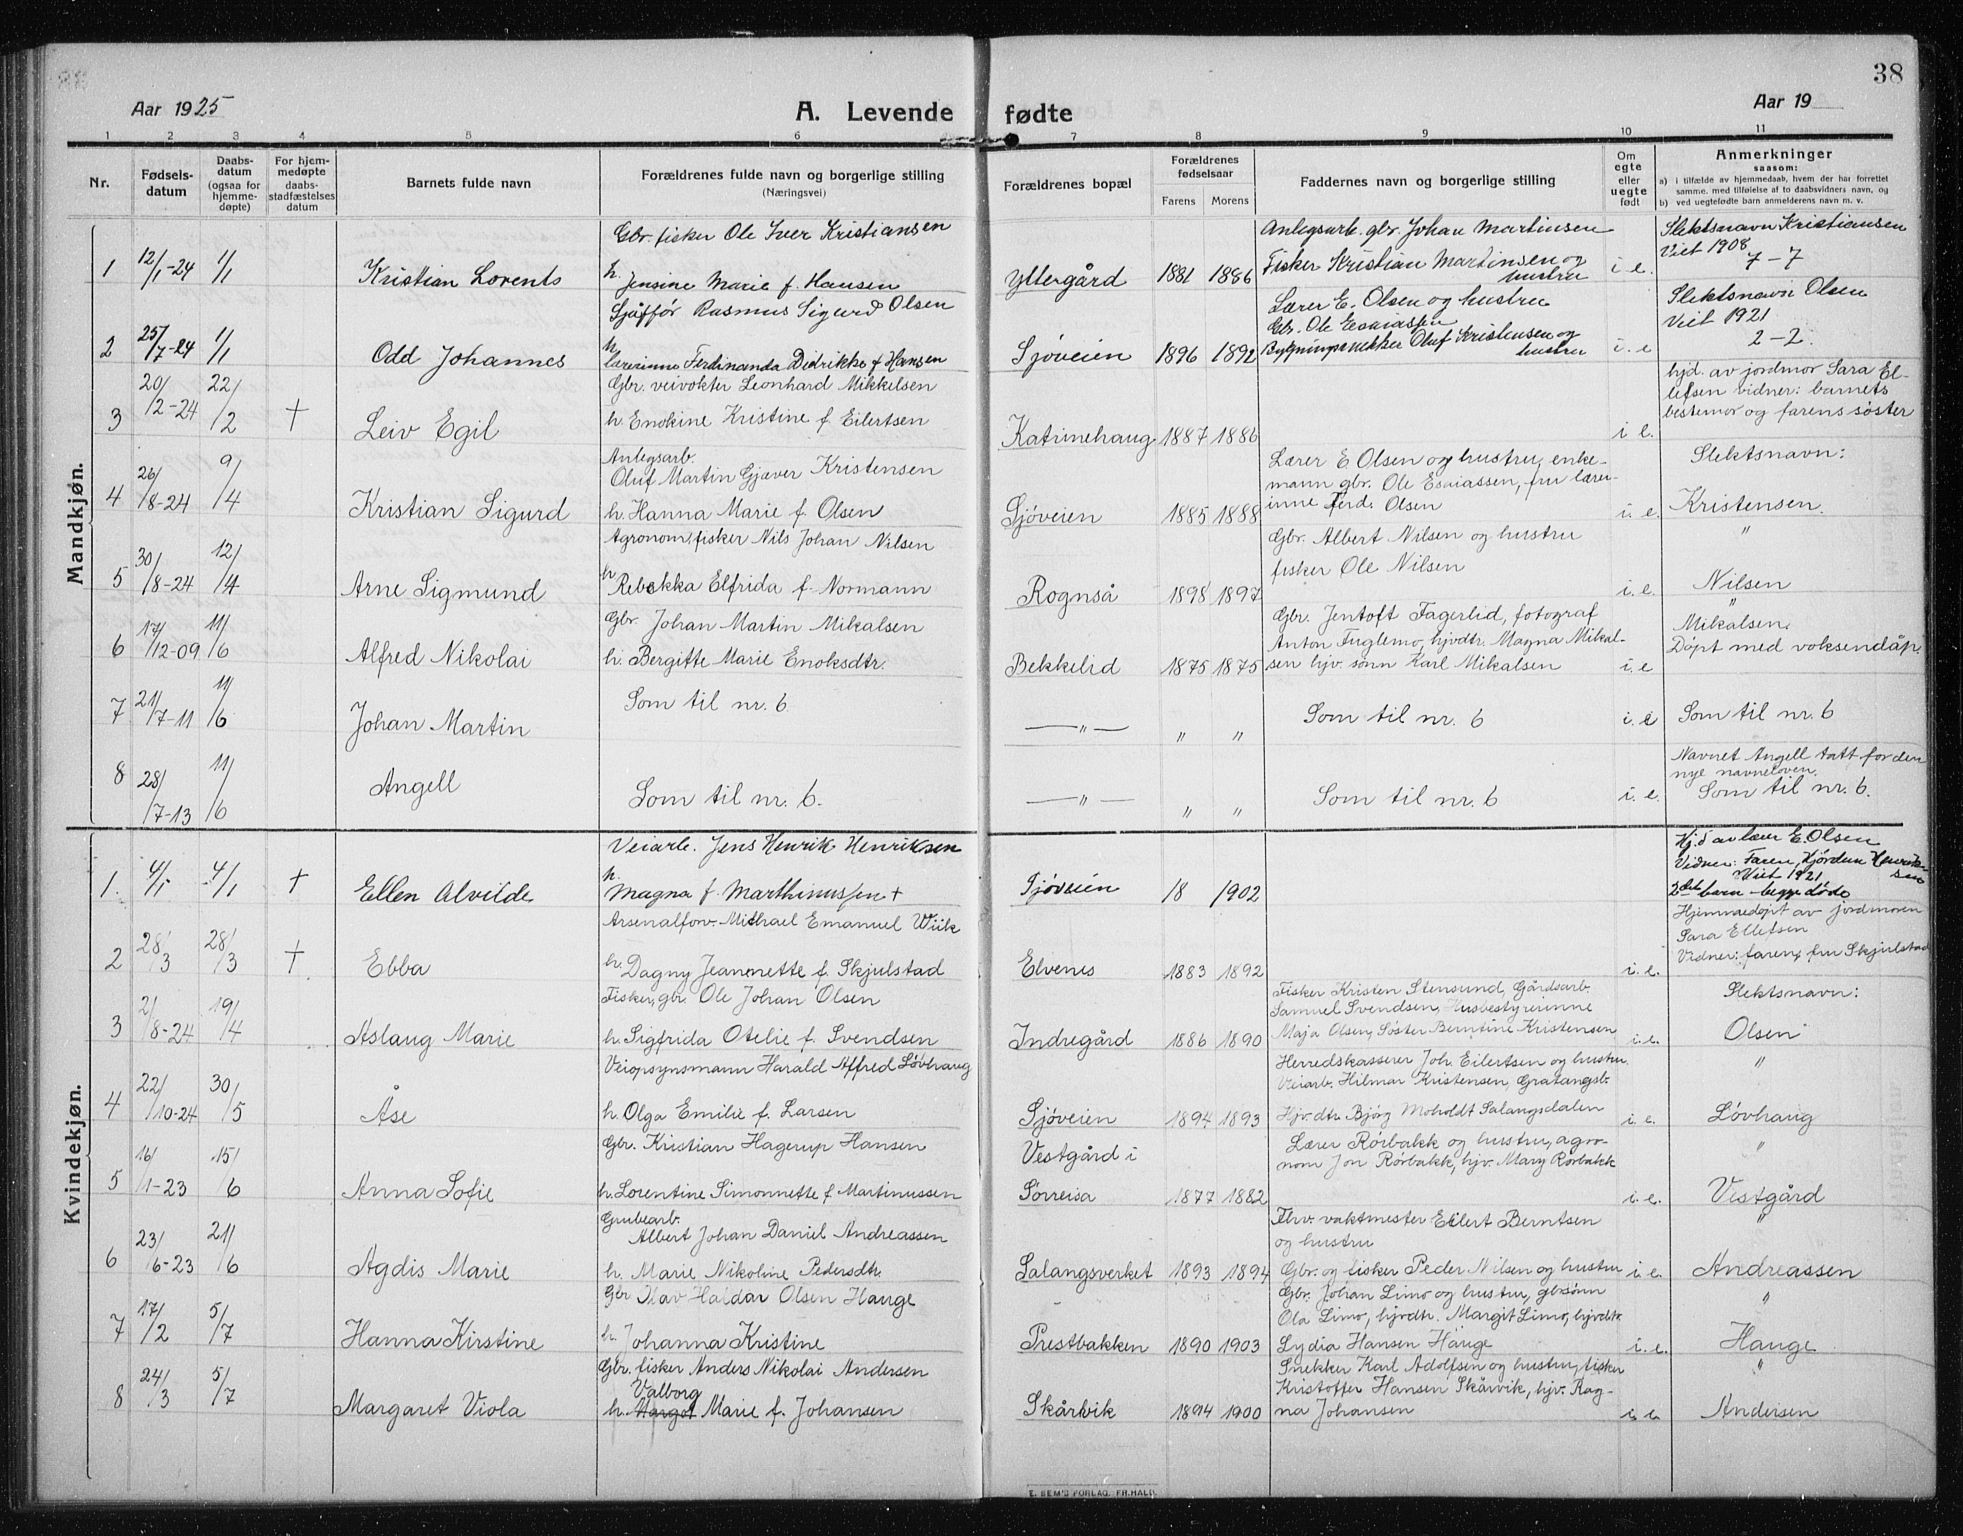 38
Aar 1925
A. Levende fødte
Aar 19
1 2 3 4 5 6 7 8 9 10 11
Nr.
Fødsels-
datum
Daabs-
datum
(ogsaa for
hjemme-
døpte)
For hjem-
medøpte
daabs-
stadfæstelses
datum
Barnets fulde navn
Forældrenes fulde navn og borgerlige stilling
(Næringsvei)
Forældrenes bopæl
Forældrenes
fødselsaar
Farens Morens
Faddernes navn og borgerlige stilling
Om
egte
eller
uegte
født
Anmerkninger
saasom:
a) i tilfælde av hjemmedaab, hvem der har forrettet
samme, med tilføielse af to daabsvidners navn, og
b) ved uegtefødte barn anmelderens navn m. v.
Mandkjøn.
1 12/1-24 1/1 Kristian Lorents
Gbr. fisker Ole Iver Kristiansen
h. Jensine Marie f. Hansen
Yttergård 1881 1886
Anlegsarb. gbr. Johan Martinsen
Fisker Kristian Martinsen og
hustru
i e.
Slektsnavn Kristiansen
Viet 1908
7-7
2 25/7-24 1/1 Odd Johannes
Sjåffør Rasmus Sigurd Olsen
h.
Lærerinne Ferdinanda Didrikke f Hansen
Sjøveien 1896 1892
Lærer E. Olsen og hustru
Gbr. Ole Esaiassen
Bygningssnekker Oluf Kristensen og
hustru
i. e
Slektsnavn Olsen
Viet 1921
2-2.
3 20/2-24 22/2 † Leiv Egil
Gbr. veivokter Leonhard Mikkelsen
h. Enokine Kristine f Eilertsen
Katrinehaug 1887 1886
i e.
hjd. av jordmor Sara El-
lefsen vidner: barnets
bestemor og farens søster
4 26/8-24 9/4 Kristian Sigurd
Anlegsarb.
Oluf Martin Gjæver Kristensen
h. Hanna Marie f. Olsen
Sjøveien 1885 1888
Lærer E Olsen og hustru, enke-
mann gbr. Ole Esaiassen, fru lærer-
inne Ferd. Olsen
i. e.
Slektsnavn:
Kristensen.
5 30/8-24 12/4 Arne Sigmund
Agronom, fisker Nils Johan Nilsen
h Rebekka Elfrida f. Normann
Rognså 1898 1897
Gbr. Albert Nilsen og hustru
fisker Ole Nilsen
i. e.
"
Nilsen
6 17/12-09 11/6 Alfred Nikolai
Gbr. Johan Martin Mikalsen
h. Bergitte Marie Enoksdtr.
Bekkelid 1875 1875
Gbr. Jentoft Fagerlid, fotograf
Anton Fuglemo, hjvdtr. Magna Mikal-
sen hjv. sønn Karl Mikalsen
i. e
"
Mikalsen.
Døpt med voksendåp.
7 21/7-11 11/6 Johan Martin
Som til nr. 6
—"— " "
Som til nr. 6
i. e
Som til nr. 6
8 28/7-13 11/6 Angell
Som til nr. 6.
—"— " "
Som til nr. 6
i. e.
Navnet Angell tatt før den
nye navneloven.
Som til nr. 6.
Kvindekjøn.
1. 4/1 4/1 † Ellen Alvilde
Veiarb. Jens Henrik Henriksen
h.
Magna f. Marthinussen †
Sjøveien 18 1902
Hj.d av lærer E. Olsen
Vidner: Faren, Hjørdun Henrik-
sen
Viet 1921
2det barn - begge døde
2 28/3 28/3 † Ebba
Arsenalforv. Michael Emanuel Wiik
h. Dagny Jeannette f. Skjulstad
Elvenes 1883 1892
i. e.
Hjemmedøpt av jordmoren
Sara Ellefsen
Vidner: faren, fru Skjulstad
3 2/8-24 19/4 Aslaug Marie
Fisker, gbr. Ole Johan Olsen
h. Sigfrida Otelie f. Svendsen
Indregård 1886 1890
Fisker Kristen Stensund, Gårdsarb.
Samuel Svendsen, Husbestyrerinne
Maja Olsen, Søster Berntine Kristensen
i. e.
Slektsnavn:
Olsen
4 22/10-24 30/5 Åse
Veiopsynsmann Harald Alfred Løvhaug
h. Olga Emilie f. Larsen
Sjøveien 1894 1893
Herredskasserer Joh. Eilertsen og hustru
Veiarb. Hilmar Kristensen, Gratangsb.
Hjv.dtr. Bjørg Moholdt Salangsdalen
i. e.
"
Løvhaug
5 16/1-23 15/6 Anna Sofie
Gbr. Kristian Hagerup Hansen
h. Lorentine Simonnette f Martinussen
Vestgård i
Sørreisa 1877 1882
Lærer Rørbakk og hustru, agro-
nom Jon Rørbakk, hjv. Mary Rørbakk
i. e.
"
Vestgård
6 23/6-23 21/6 Agdis Marie
Grubearb.
Albert Johan Daniel Andreassen
h. Marie Nikoline Pedersdtr.
Salangsverket 1893 1894
Fhv. vaktmester Eilert Berntsen
og hustru
Gbr. og fisker Peder Nilsen og hustru
i. e.
"
Andreassen
7 17/2 5/7 Hanna Kirstine
Gbr Olav Haldar Olsen Hauge
h. Johanna Kristine
Prestbakken 1890 1903
Gbr. Johan Limo og hustru, gbrsønn
Ola Limo, hjvdtr. Margit Limo, hjvdtr.
Lydia Hansen Hauge
i. e.
"
Hauge
8 24/3 5/7 Margaret Viola
Gbr. fisker Anders Nikolai Andersen
Valborg
h. Margot Marie f. Johansen
Skårvik 1894 1900
Snekker Karl Adolfsen og hustru, fisker
Kristoffer Hansen Skårvik, hjv. Rag-
na Johansen
i. e.
"
Andersen
E. SEM'S FORLAG, FR.HALD.